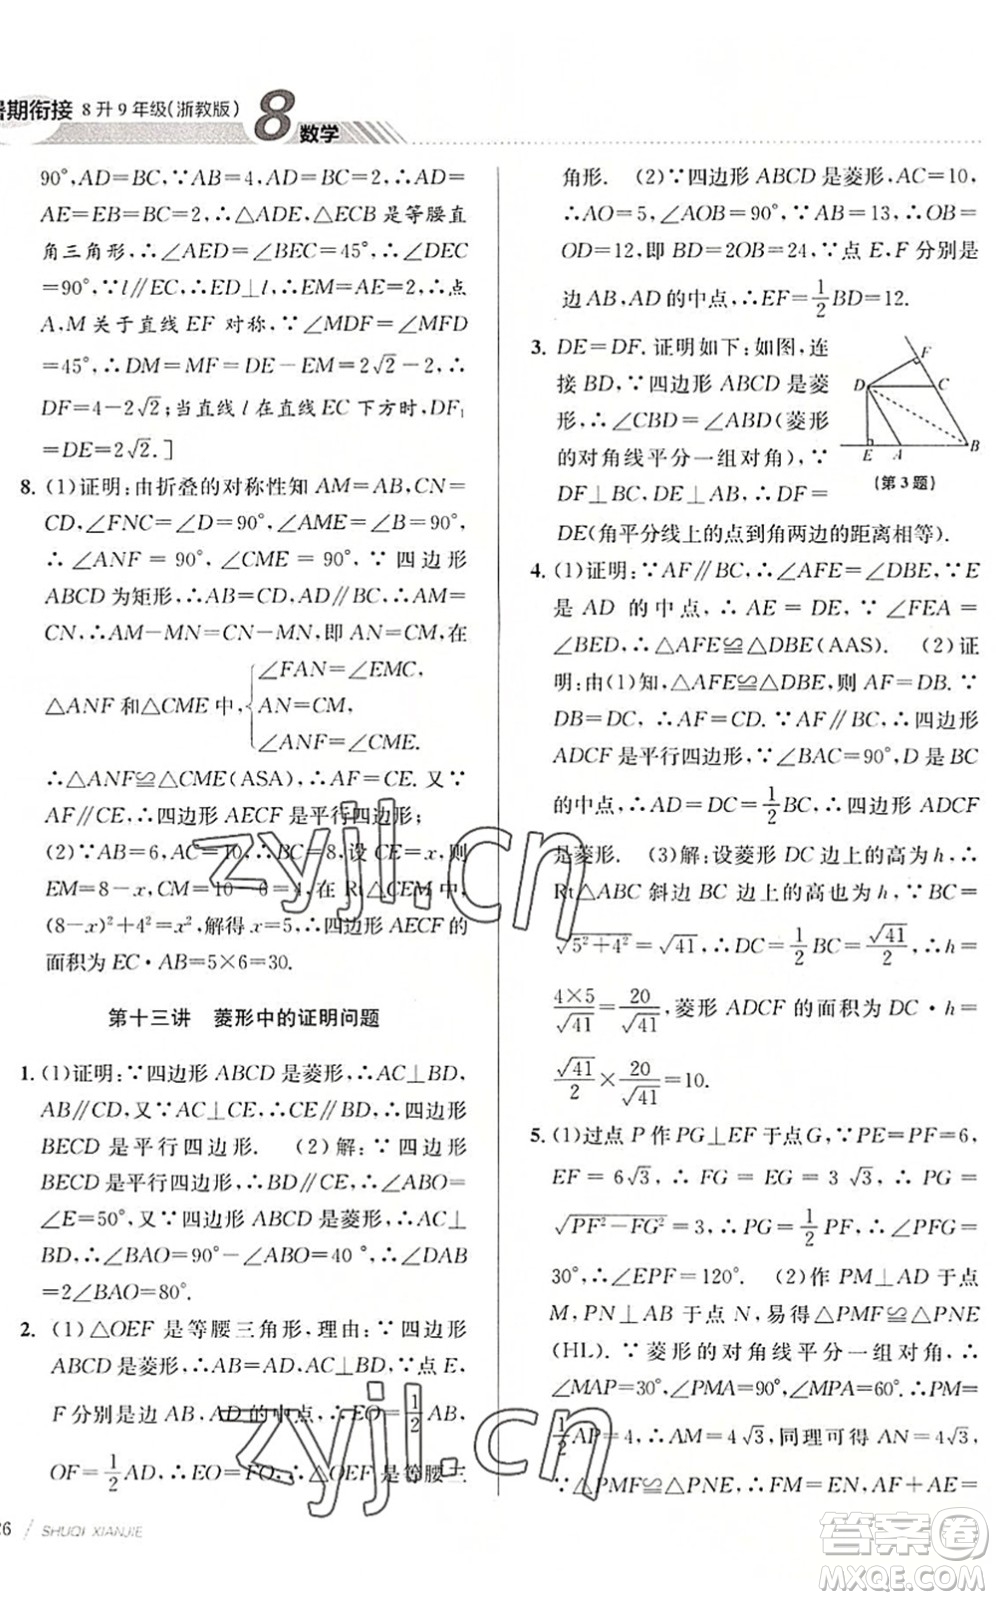 暑期衔接 8升9年级(浙教版) 8 数学
90°,AD=BC,∵AB=4,AD=BC=2,∴AD=
AE=EB=BC=2,∴△ADE,△ECB是等腰直
角三角形,∴∠AED=∠BEC=45°,∴∠DEC
=90°,∵l∥EC,∴ED⊥l,∴EM=AE=2,∴点
A,M关于直线EF对称,∵∠MDF=∠MFD
=45°,∴DM=MF=DE-EM=2√2-2,∴
DF=4-2√2;当直线l在直线EC下方时,DF₁
=DE=2√2.]
8. (1)证明:由折叠的对称性知AM=AB,CN=
CD,∠FNC=∠D=90°,∠AME=∠B=90°,
∴∠ANF=90°,∠CME=90°,∵四边形
ABCD为矩形,∴AB=CD,AD∥BC,∴AM=
CN,∴AM-MN=CN-MN,即AN=CM,在
△ANF和△CME中,{∠FAN=∠EMC,
AN=CM,
∠ANF=∠CME.
∴△ANF≌△CME(ASA),∴AF=CE.又∵
AF∥CE,∴四边形AECF是平行四边形;
(2)∵AB=6,AC=10,∴BC=8,设CE=x,则
EM=8-x,CM=10-6=4,在Rt△CEM中,
(8-x)²+4²=x²,解得x=5,∴四边形AECF的
面积为EC·AB=5×6=30.
第十三讲 菱形中的证明问题
1. (1)证明:∵四边形ABCD是菱形,∴AC⊥BD,
AB∥CD,又∵AC⊥CE,∴CE∥BD,∴四边形
BECD是平行四边形. (2)解:∵四边形
BECD是平行四边形,∴BD∥CE,∴∠ABO=
∠E=50°,又∵四边形ABCD是菱形,∴AC⊥
BD,∴∠BAO=90°-∠ABO=40°,∴∠DAB
=2∠BAO=80°.
2. (1)△OEF是等腰三角形,理由:∵四边形
ABCD是菱形,∴AB=AD,AC⊥BD,∵点E,
F分别是边AB,AD的中点,∴EO=1/2AB,
OF=1/2AD,∴EO=FO,∴△OEF是等腰三
角形. (2)∵四边形ABCD是菱形,AC=10,
∴AO=5,∠AOB=90°,∵AB=13,∴OB=
OD=12,即BD=2OB=24,∵点E,F分别是
边AB,AD的中点,∴EF=1/2BD=12.
3. DE=DF.证明如下:如图,连
接BD,∵四边形ABCD是菱
形,∴∠CBD=∠ABD(菱形
的对角线平分一组对角),∵
DF⊥BC,DE⊥AB,∴DF=
DE(角平分线上的点到角两边的距离相等).
F
D
C
E
A
B
(第3题)
4. (1)证明:∵AF∥BC,∴∠AFE=∠DBE,∵E
是AD的中点,∴AE=DE,∵∠FEA=
∠BED,∴△AFE≌△DBE(AAS). (2)证
明:由(1)知,△AFE≌△DBE,则AF=DB.∵
DB=DC,∴AF=CD.∵AF∥BC,∴四边形
ADCF是平行四边形,∵∠BAC=90°,D是BC
的中点,∴AD=DC=1/2BC,∴四边形ADCF
是菱形. (3)解:设菱形DC边上的高为h,∴
Rt△ABC斜边BC边上的高也为h,∵BC=
√(5²+4²)=√41,∴DC=1/2BC=√41/2,∴h=
4×5/√41=20/√41,∴菱形ADCF的面积为DC·h=
√41/2×20/√41=10.
5. (1)过点P作PG⊥EF于点G,∵PE=PF=6,
EF=6√3,∴FG=EG=3√3,∴PG=
√(PF²-FG²)=3,∴PG=1/2PF,∴∠PFG=
30°,∴∠EPF=120°. (2)作PM⊥AD于点
M,PN⊥AB于点N,易得△PMF≌△PNE
(HL).∵菱形的对角线平分一组对角,∴
∠MAP=30°,∠PMA=90°,∠MPA=60°.∴PM=
1/2AP=4,∴AM=4√3,同理可得AN=4√3,
∵△PMF≌△PNE,∴FM=EN,AF+AE=
26 / SHUQI XIANJIE
zyjl.cn
zyjl.cn
答案圈
MXQE.COM